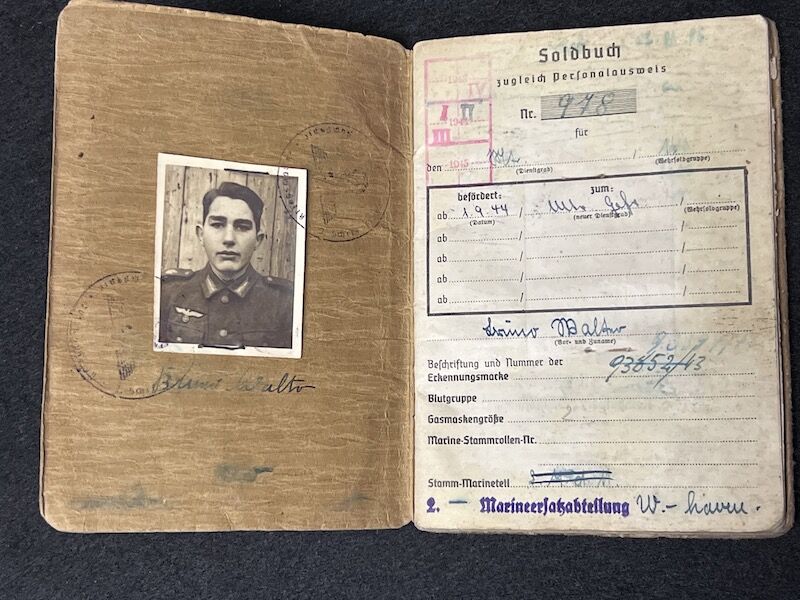 Bruno Walter
Soldbuch
zugleich Personalausweis
Nr. 978
für
1943
VI
I II
1944
III
1945
den / 
(Dienstgrad) (Wehrsoldgruppe)
befördert: zum:
ab 1.9.44 / Mtr. Gefr. /
(Datum) (neuer Dienstgrad) (Wehrsoldgruppe)
ab / /
ab / /
ab / /
ab / /
Bruno Walter
(Vor- und Zuname)
Beschriftung und Nummer der
Erkennungsmarke 93852/43
Blutgruppe
Gasmaskengröße 2
Marine-Stammrollen-Nr.
Stamm-Marineteil
2. – Marineersatzabteilung W.-haven.